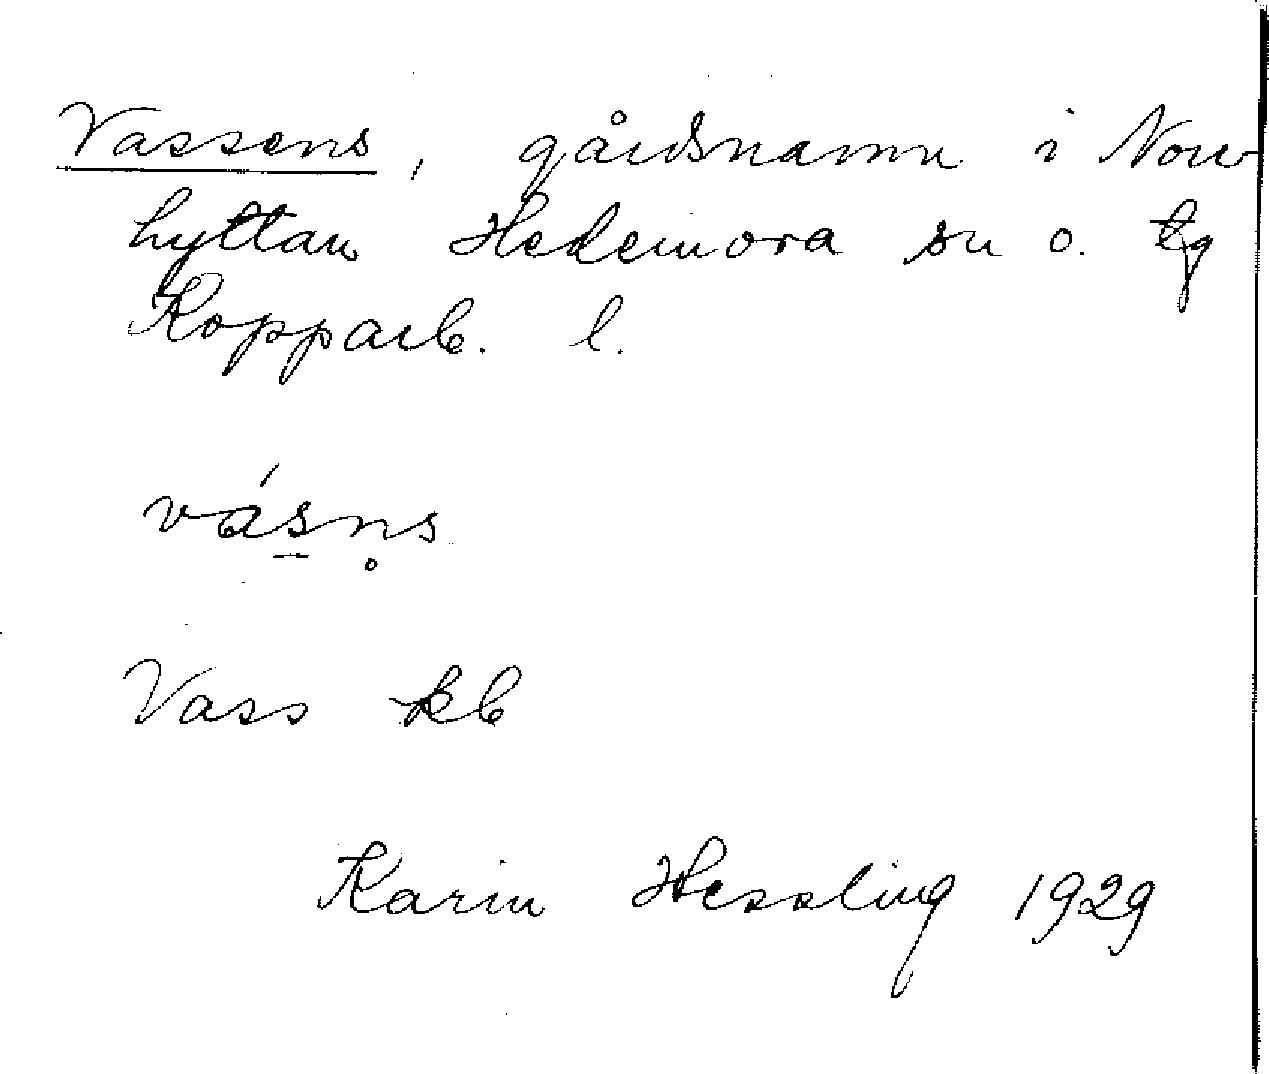 Vassens, gårdsnamn i Norr-
hyttan Hedemora sn o. tg
Kopparb. l.
vás̱n̥s
Vass kb
Karin Hessling 1929